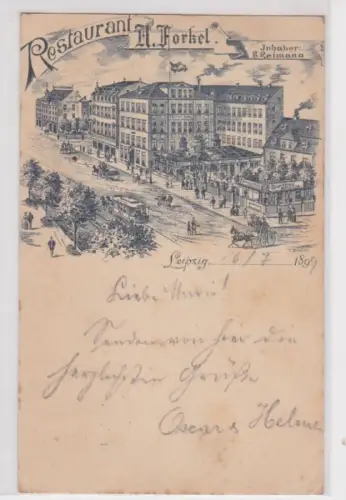 Restaurant A. Forkel.
Inhaber:
Reimann
Leipzig, 6/7 1899
Liebe
Senden von hier die
herzlichsten Grüße
Oscar & Helene